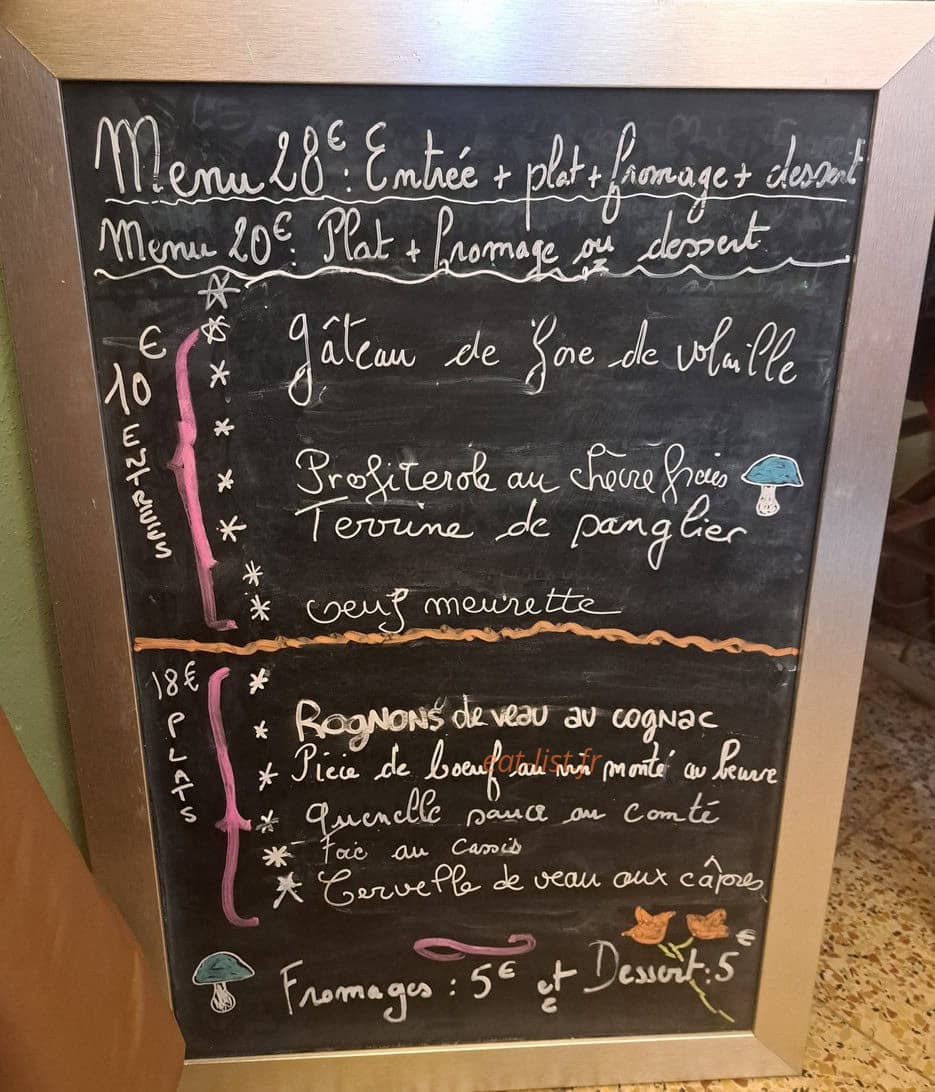 Menu 28€: Entrée + plat + fromage + dessert
Menu 20€: Plat + fromage ou dessert
€ 10 ENTREES
gâteau de foie de volaille
Profiterole au chèvre frais
Terrine de sanglier
oeuf meurette
18€ PLATS
ROGNONS de veau au cognac
Pièce de boeuf au vin monté au beurre
eat-list.fr
quenelle sauce au Comté
Foie au Cassis
Cervelle de veau aux câpres
Fromages : 5€ et Dessert : 5€